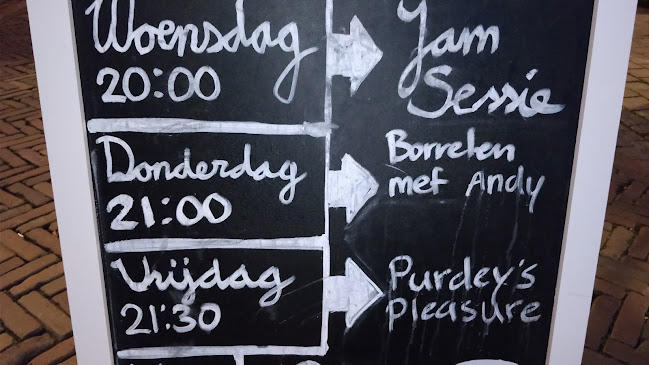 Woensdag
20:00
Jam
Sessie
Donderdag
21:00
Borrelen
met Andy
Vrijdag
21:30
Purdey's
pleasure